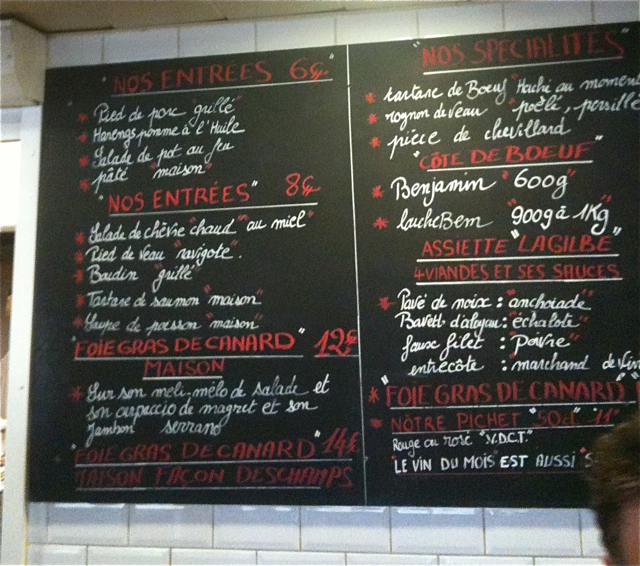 "NOS ENTRÉES 6€"
* Pied de porc "grillé"
* Harengs pomme à l'Huile
* Salade de pot au feu
* pâté "maison"
"NOS ENTRÉES" 8€
* Salade de chèvre "chaud" au miel
* Pied de Veau "ravigote".
* Boudin "grillé"
* Tartare de saumon "maison"
* Soupe de poisson "maison"
"FOIE GRAS DE CANARD" 12€
MAISON
* Sur son meli-mélo de salade et
son carpaccio de magret et son
Jambon serrano
"FOIE GRAS DE CANARD" 14€
MAISON FACON DESCHAMPS
"NOS SPÉCIALITÉS"
* tartare de Boeuf "Haché au moment
* rognon de veau "poêlé, persillé
* pièce de chevillard
"CÔTE DE BOEUF"
* Benjamin "600g"
* loucheBem "900g à 1Kg"
ASSIETTE "LAGILBE"
4 VIANDES ET SES SAUCES
* Pavé de noix : "anchoiade"
Bavett d'aloyau: "échalote"
faux filet : "Poivre"
entrecôte : "marchand de Vin
* "FOIE GRAS DE CANARD"
* NOTRE PICHET "50cl" 11"
Rouge ou rosé "V.D.C.T."
"LE VIN DU MOIS EST AUSSI